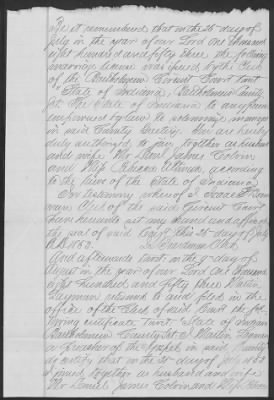 Be it remembered that on the 25 day of
July in the year of our Lord one thousand
eight hundred and fifty three the following
marriage license was issued by the Clerk
of the Bartholomew Circuit Court to wit
State of Indiana, Bartholomew County
Sct. The State of Indiana to any person
empowered by law to solemnize marriages
in said County Greeting. You are hereby
duly authorized to join together as husband
and wife Mr Daniel James Colvin
and Miss Rebecca according
to the laws of the State of Indiana
In testimony whereof I
Clerk of the said Circuit Court
have hereunto set my hand and affixed
the seal of said Court this 25 day of July
A.D. 1853. Clk.
And afterwards to wit on the 9 day of
August in the year of our Lord one thousand
eight hundred and fifty three
Layman returned to and filed in the
office of the Clerk of said Court the fol-
lowing certificate to wit. State of Indiana
Bartholomew County Sct. I Layman
a Preacher of the Gospel in said County
certify that on the 31 day of July 1853
I joined together as husband and wife
Mr Daniel James Colvin and Miss